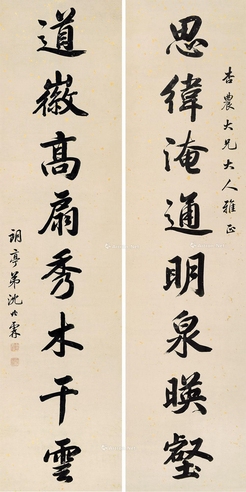 杏農大兄大人雅正
思緯淹通明泉暎壑
道徽高扇秀木干雲
弟沈
霖